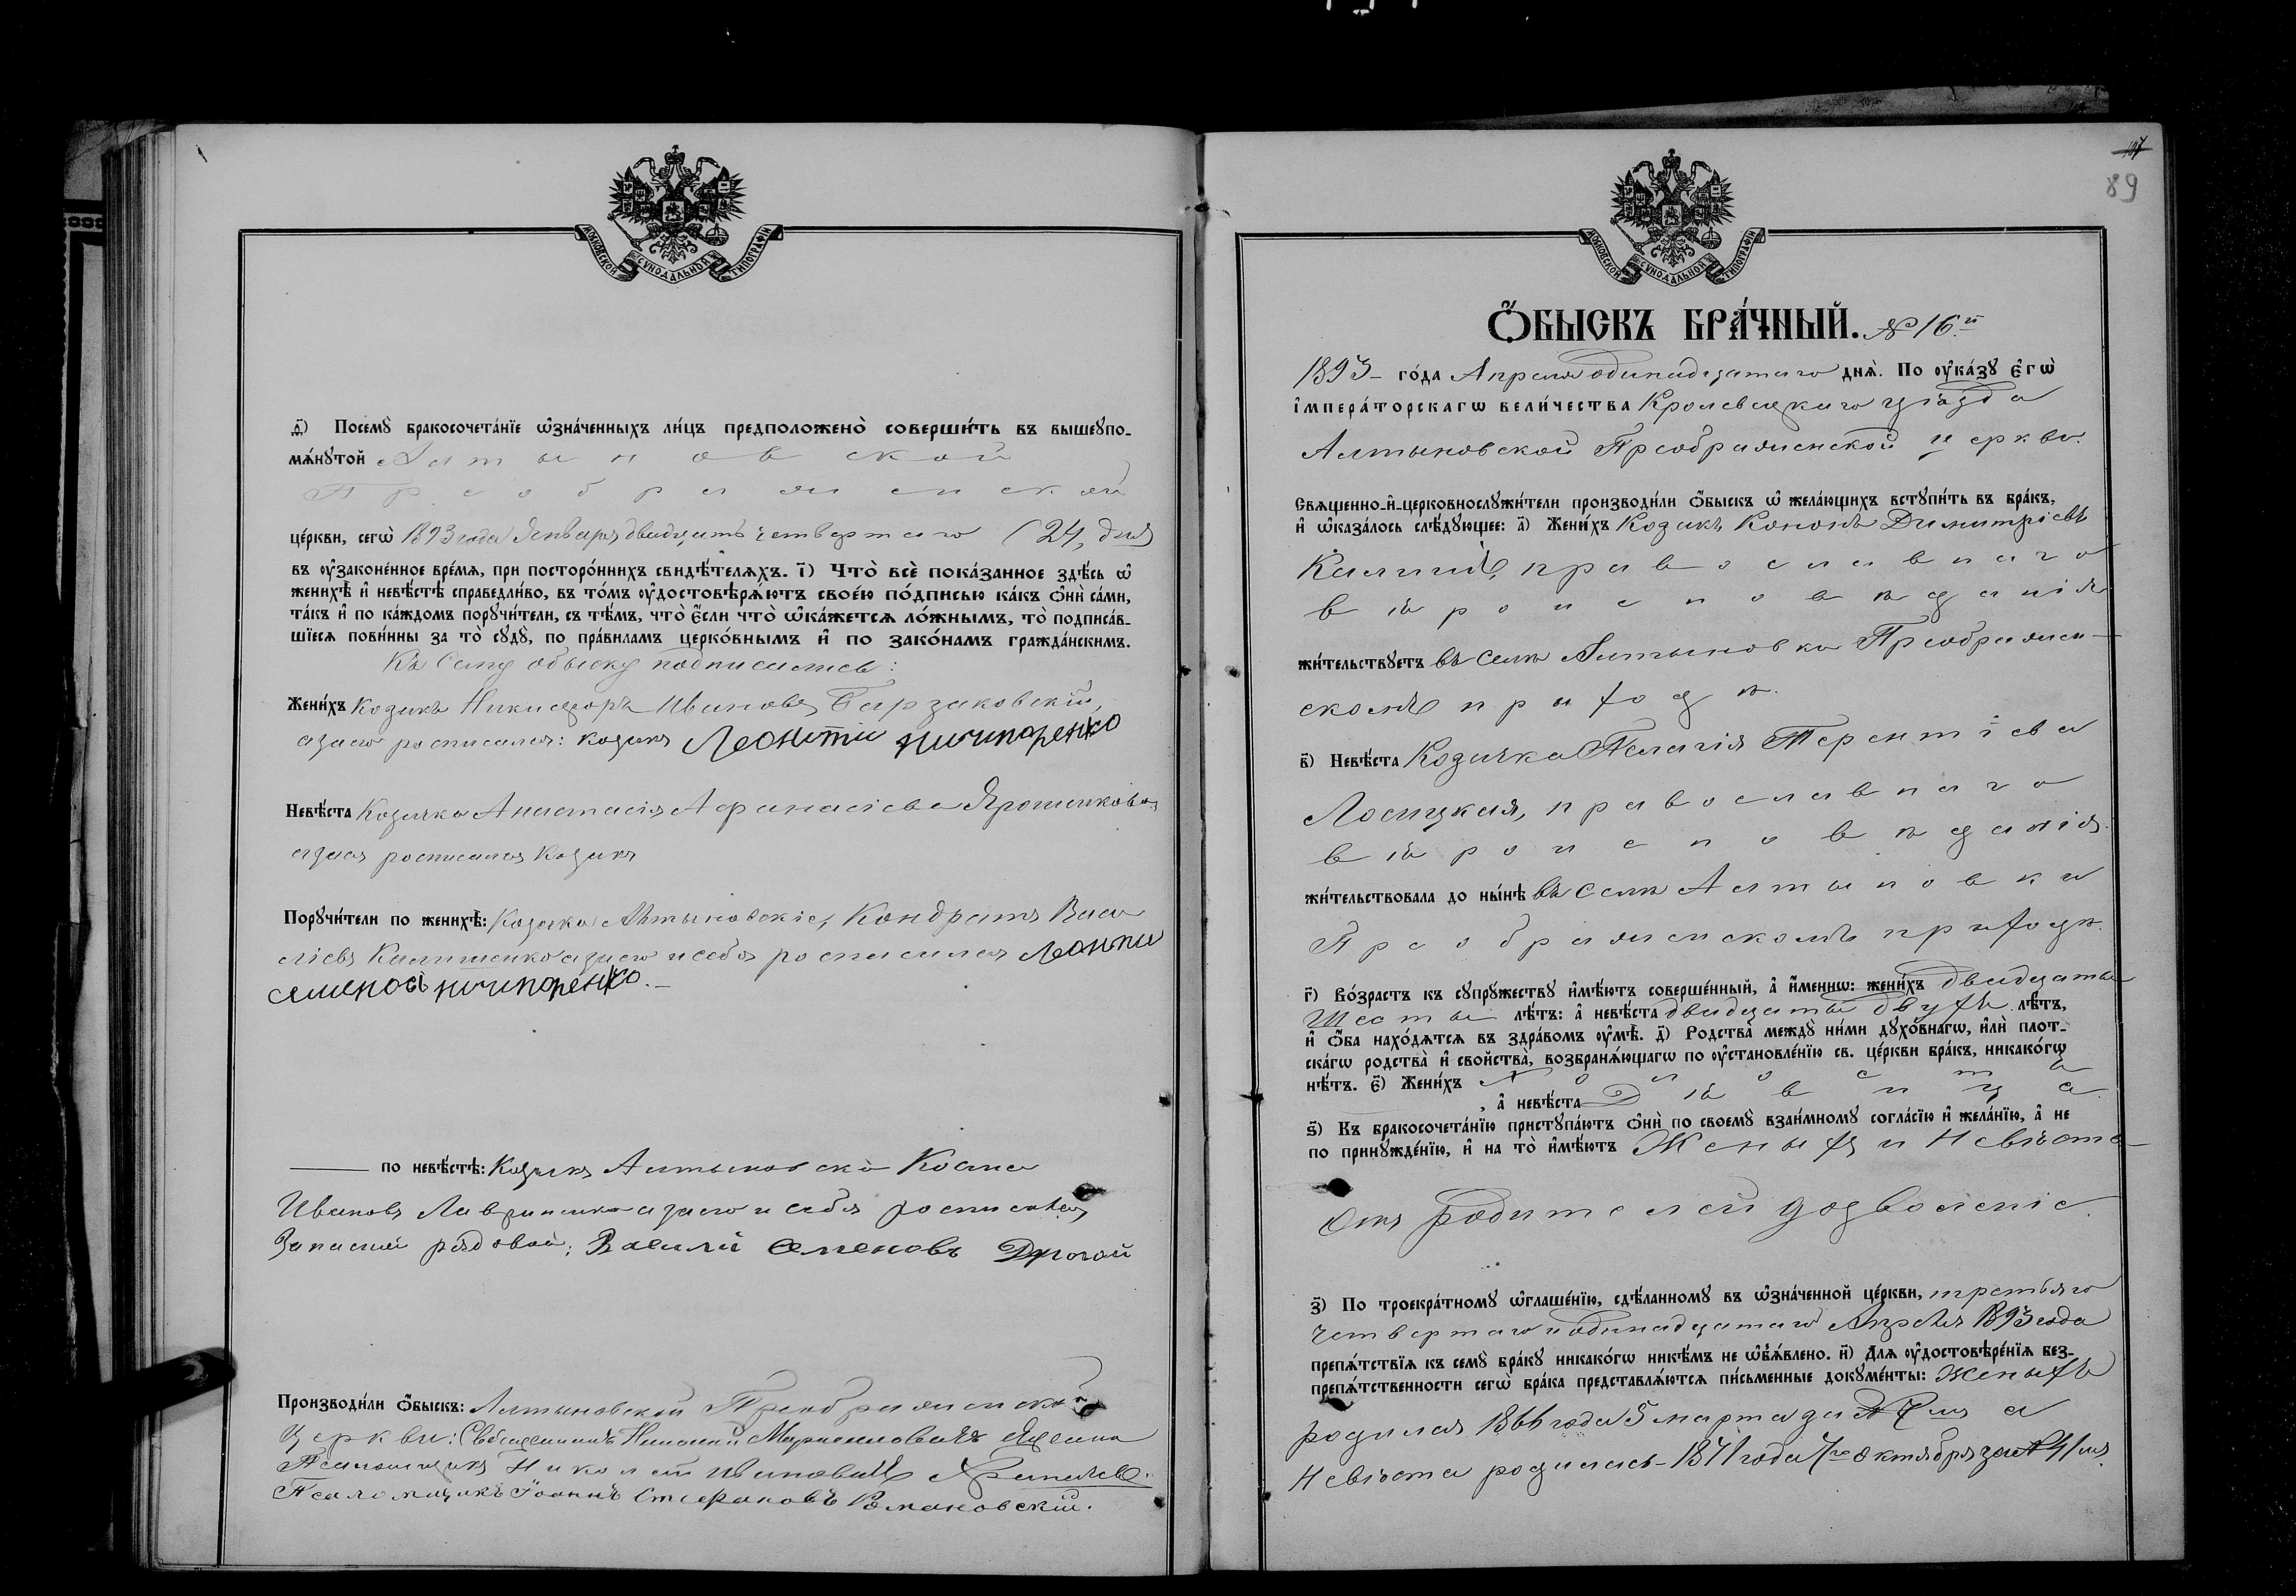 МОСКОВСКОЙ СУНОДАЛЬНОЙ ТИПОГРАФІИ
д҃) Посемꙋ̀ бракосочета́нїе ѡ҆зна́ченныхъ ли́цъ предположено̀ соверши́ть въ вышеꙋпо-
мѧ́нꙋтой Алтыновской
Преображенской
це́ркви, сегѡ̀ 1893 года Января двадцать четвертаго (24, дня
въ ᲂу҆законе́нное вре́мѧ, при посторо́ннихъ свидѣ́телѧхъ. і҃) Что̀ всѐ пока́занное здѣ́сь ѡ҆
женихѣ̀ и҆ невѣ́стѣ справедли́во, въ то́мъ ᲂу҆достовѣрѧ́ютъ свое́ю по́дписью ка́къ ѻ҆нѝ са́ми,
та́къ и҆ по ка́ждомъ порꙋчи́тели, съ тѣ́мъ, что̀ є҆́сли что̀ ѡ҆ка́жетсѧ ло́жнымъ, то̀ подписа́в-
шїесѧ пови́нны за то̀ сꙋдꙋ̀, по пра́виламъ церко́внымъ и҆ по зако́намъ гражда́нскимъ.
Къ сему обыску подписались:
Жени́хъ Козакъ Никифоръ Ивановъ Барзаковскій,
а за него росписался: козакъ Леонтіи ничипоренко
Невѣ́ста Козачка Анастасія Афанасіева Ярошенкова
а за нея росписался Козакъ
Порꙋчи́тели по женихѣ̀: Козаки Алтыновскіе, Кондратъ Васи
ліевъ Калишенко а за него и себя росписался Леонти
семеновъ ничипоренко.
по невѣ́стѣ: Козакъ Алтыновскій Косма
Ивановъ а за него и себя росписался
Запасный рядовой; Василій Семеновъ Другой
Производи́ли ѻ҆́быскъ: Алтыновской Преображенской
Церкви: Священникъ Николай
Псаломщикъ Николай Ивановичъ
Псаломщикъ Іоаннъ Стефановъ Романовскій.
107
89
МОСКОВСКОЙ СУНОДАЛЬНОЙ ТИПОГРАФІИ
Ѻ҆́БЫСКЪ БРА́ЧНЫЙ. № 16.й
1893 го́да Апреля одинадцатаго днѧ̀. По ᲂу҆ка́зꙋ є҆гѡ̀
і҆мпера́торскагѡ вели́чества Кролевецкаго уѣзда
Алтыновской Преображенской церкви.
Свѧщенно-и҆-церковнослꙋжи́тели производи́ли ѻ҆́быскъ ѡ҆ жела́ющихъ встꙋпи́ть въ бра́къ,
и҆ ѡ҆каза́лось слѣ́дꙋющее: а҃) Жени́хъ Козакъ Кононъ Димитріевъ
православнаго
вѣроисповѣданія
жи́тельствꙋетъ въ селѣ Алтыновки Преображен-
скомъ приходѣ.
в҃) Невѣ́ста Козачка Пелагія Терентіева
Лосицкая, православнаго
вѣроисповѣданія.
жи́тельствовала до ны́нѣ въ селѣ Алтыновки
Преображенскомъ приходѣ.
г҃) Во́зрастъ къ сꙋпрꙋ́жествꙋ и҆мѣ́ютъ соверше́нный, а҆ и҆́менно: жени́хъ двадцати
шести лѣ́тъ: а҆ невѣ́ста двадцати двухъ лѣ́тъ,
и҆ ѻ҆́ба нахо́дѧтсѧ въ здра́вомъ ᲂу҆мѣ̀. д҃) Родства̀ междꙋ̀ ни́ми дꙋхо́внагѡ, и҆лѝ плот-
ска́гѡ родства̀ и҆ свойства̀, возбранѧ́ющагѡ по ᲂу҆становле́нїю св. це́ркви бра́къ, никако́гѡ
нѣ́тъ. є҃) Жени́хъ Холостъ
, а҆ невѣ́ста Дѣвица
ѕ҃) Къ бракосочета́нїю пристꙋпа́ютъ ѻ҆нѝ по своемꙋ̀ взаи́мномꙋ согла́сїю и҆ жела́нїю, а҆ не
по принꙋжде́нїю, и҆ на то̀ и҆мѣ́ютъ Женихъ и Невѣста
отъ родителей дозволеніе.
з҃) По троекра́тномꙋ ѡ҆глаше́нїю, сдѣ́ланномꙋ въ ѡ҆зна́ченной це́ркви, третьяго
четвертаго и одинадцатаго Апреля 1893 года
препѧ́тствїѧ къ семꙋ̀ бра́кꙋ никако́гѡ никѣ́мъ не ѡ҆б̾ѧ́влено. и҃) Длѧ ᲂу҆достовѣре́нїѧ без-
препѧ́тственности сегѡ̀ бра́ка представлѧ́ютсѧ пи́сьменные докꙋме́нты: Женихъ
родился 1866 года 5 марта за № а
Невѣста родилась 1871 года 7го октября за №